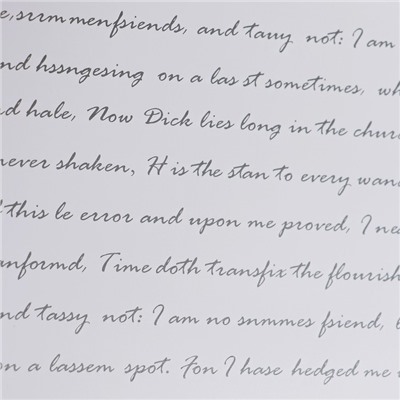 e, srrmmenfsiends, and tauy not: I am
nd hssngesing on a las st sometimes, wh
d hale, Now Dick lies long in the chur
never shaken, H is the stan to every wan
f this le error and upon me proved, I ne
anformd, Time doth transfix the flourish
nd tassy not: I am no snmmes fsiend,
on a lassem spot. Fon I hase hedged me